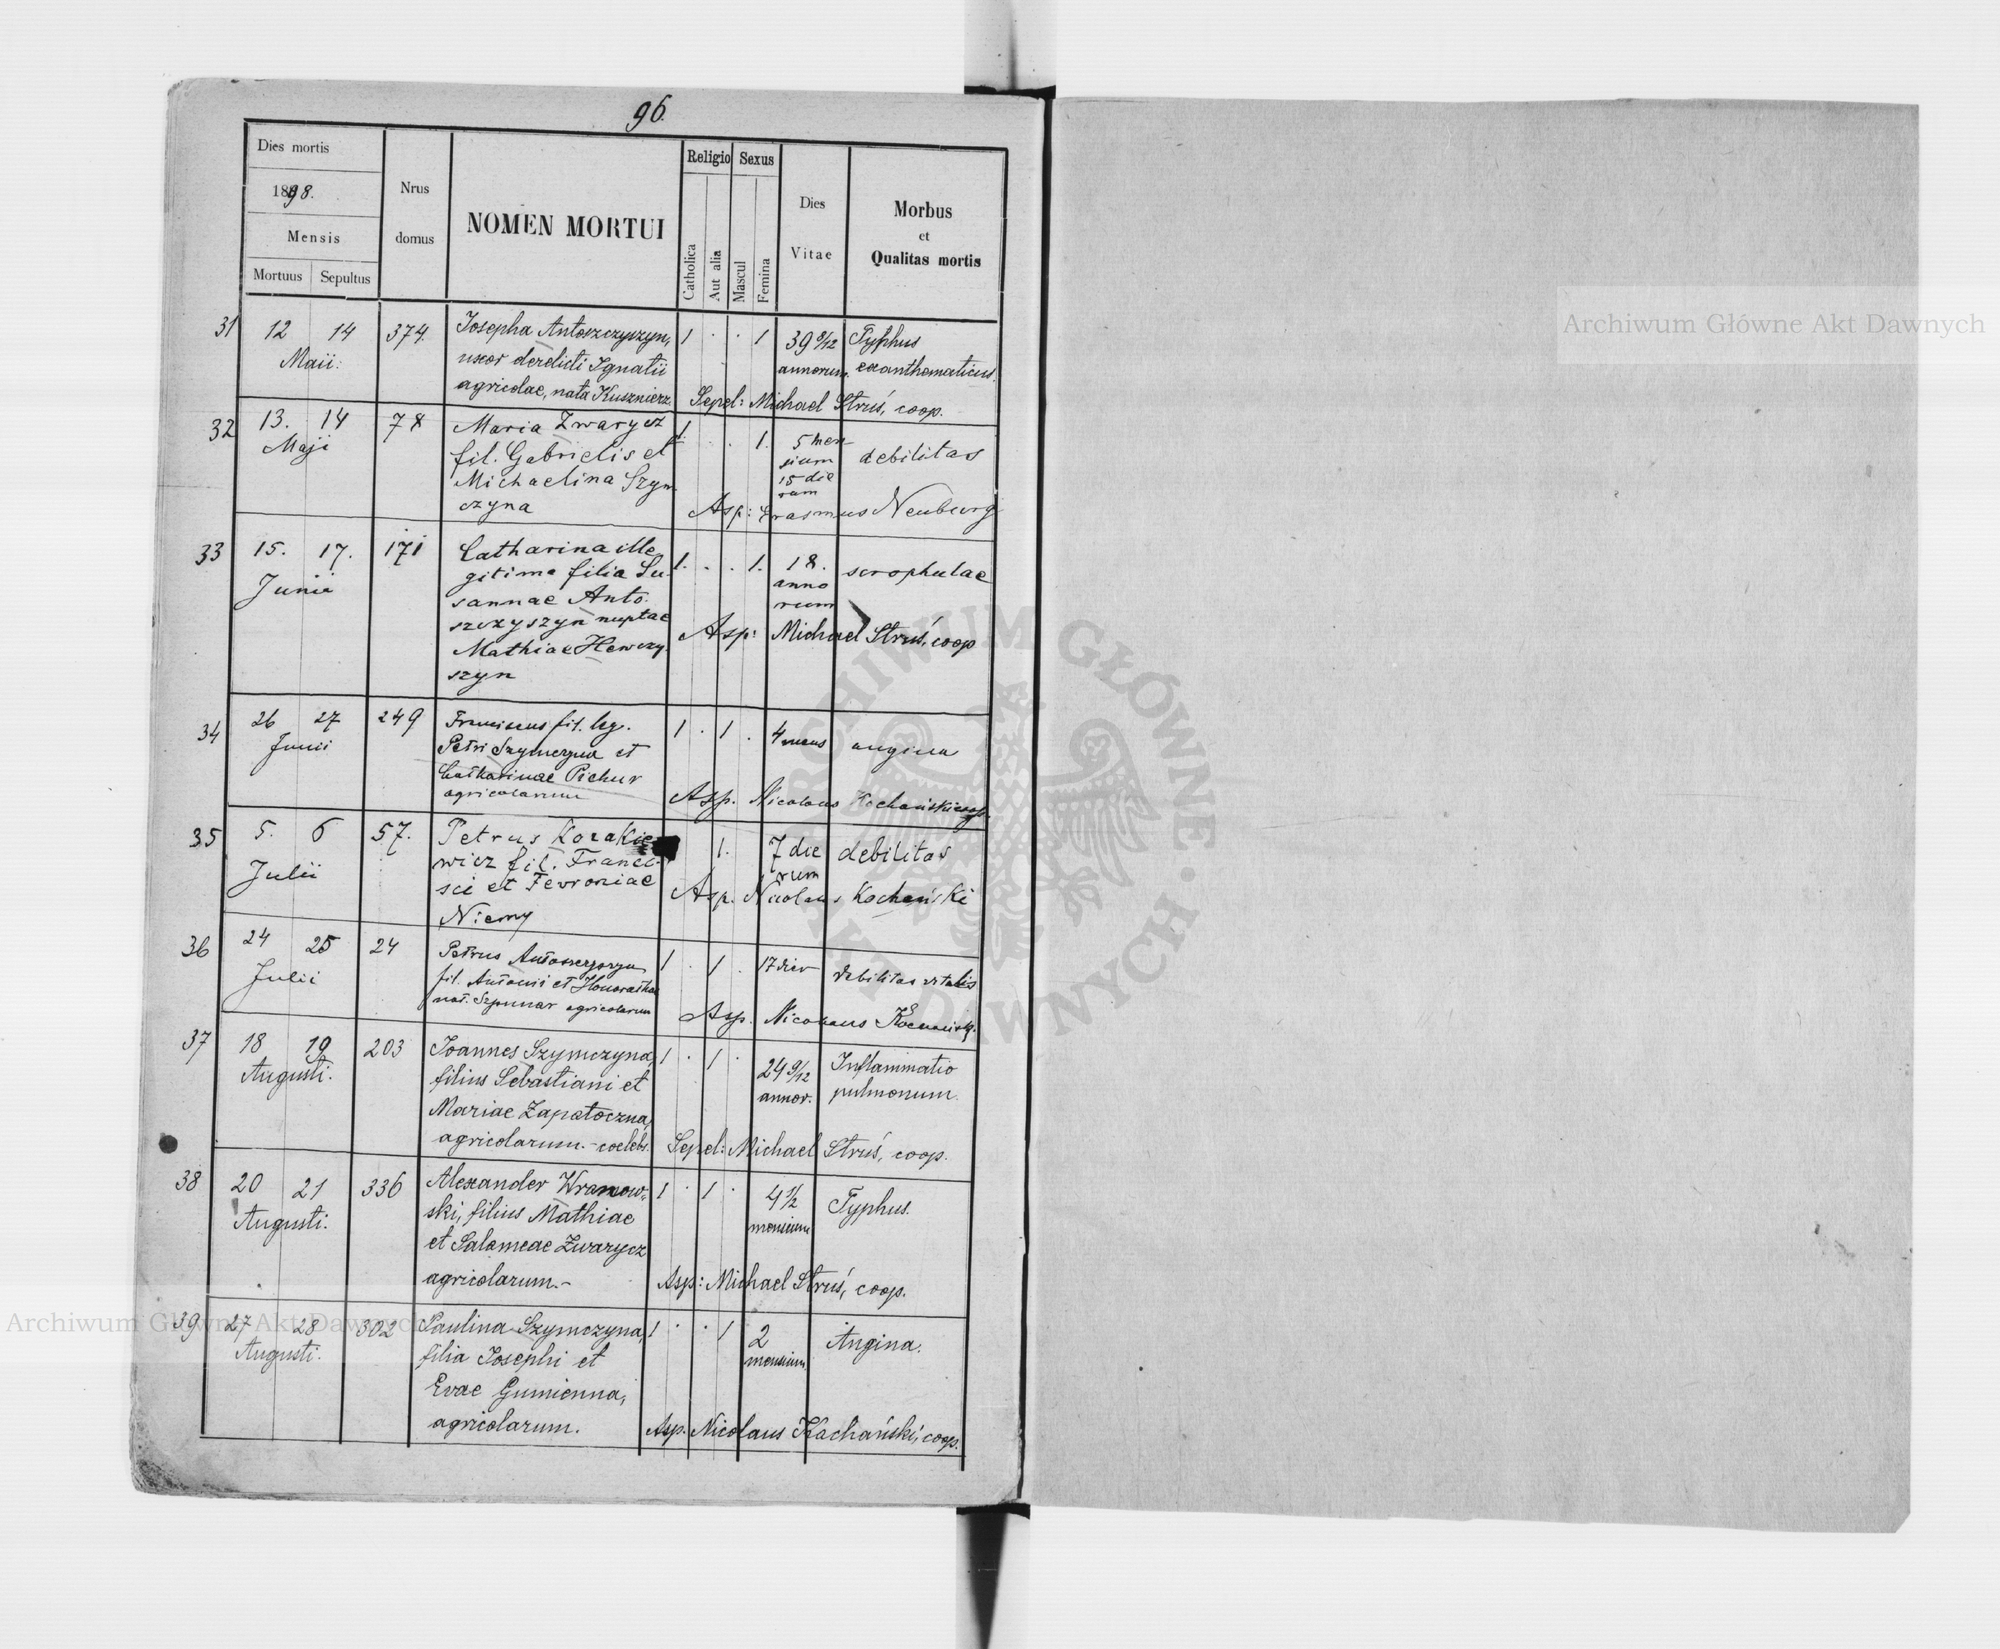 96.
Dies mortis
1898.
Mensis
Mortuus Sepultus
Nrus
domus
NOMEN MORTUI
Religio Sexus
Catholica
Aut alia
Mascul
Femina
Dies
Vitae
Morbus
et
Qualitas mortis
31 12 14 374. Josepha Antoszczyszyn, 1 . . 1 39 9/12 Typhus
Maii: uxor derelicti Ignatii annorum. exanthematicus.
agricolae, nata Kusznierz. Sepel: Michael Struś, coop.
32 13. 14 78 Maria Zwarycz 1. . . 1. 5 men
Maji fil. Gabrielis et sium debilitas
Michaelina Szym 15 die
czyna rum
Asp: Erasmus Neuburg
33 15. 17. 171 Catharina ille 1. . . 1. 18. scrophulae
Junii gitima filia Su anno
sannae Anto. rum
szczyszyn nuptae Asp: Michael Struś, coop
Mathiae Hewczy
szyn
34 26 27 249 Franciscus fil. leg. 1 . 1 . 4 mens angina
Junii Petri Szymczyna et
Catharinae Pichur
agricolarum Asp. Nicolaus Kochański coop.
35 5. 6 57. Petrus Kozakie 1. 7 die debilitas
Julii wicz fil. Franci- rum
sci et Fevroniae Asp. Nicolaus Kochański
Niemy
36 24 25 24 Petrus Antoszczyszyn 1 . 1 . 17 dier debilitas vitalis
Julii fil. Antonii et Honorathae
nat. Szpunar agricolarum Asp. Nicolaus
37 18 19 203 Joannes Szymczyna, 1 . 1 . 24 9/12 Inflammatio
Augusti. filius Sebastiani et annor. pulmonum.
Mariae Zapatoczna,
agricolarum.- coelebs. Sepel: Michael Struś, coop.
38 20 21 336 Alexander Wranow- 1 . 1 . 4 1/2 Typhus.
Augusti. ski, filius Mathiae mensium
et Salomeae Zwarycz
agricolarum.- Asp: Michael Struś, coop.
39 27 28 302 Paulina Szymczyna, 1 . . 1 2 Angina.
Augusti. filia Josephi et mensium.
Evae Gumienna,
agricolarum. Asp. Nicolaus Kochański, coop.
Archiwum Główne Akt Dawnych
Archiwum Główne Akt Dawnych
ARCHIWUM GŁÓWNE AKT DAWNYCH